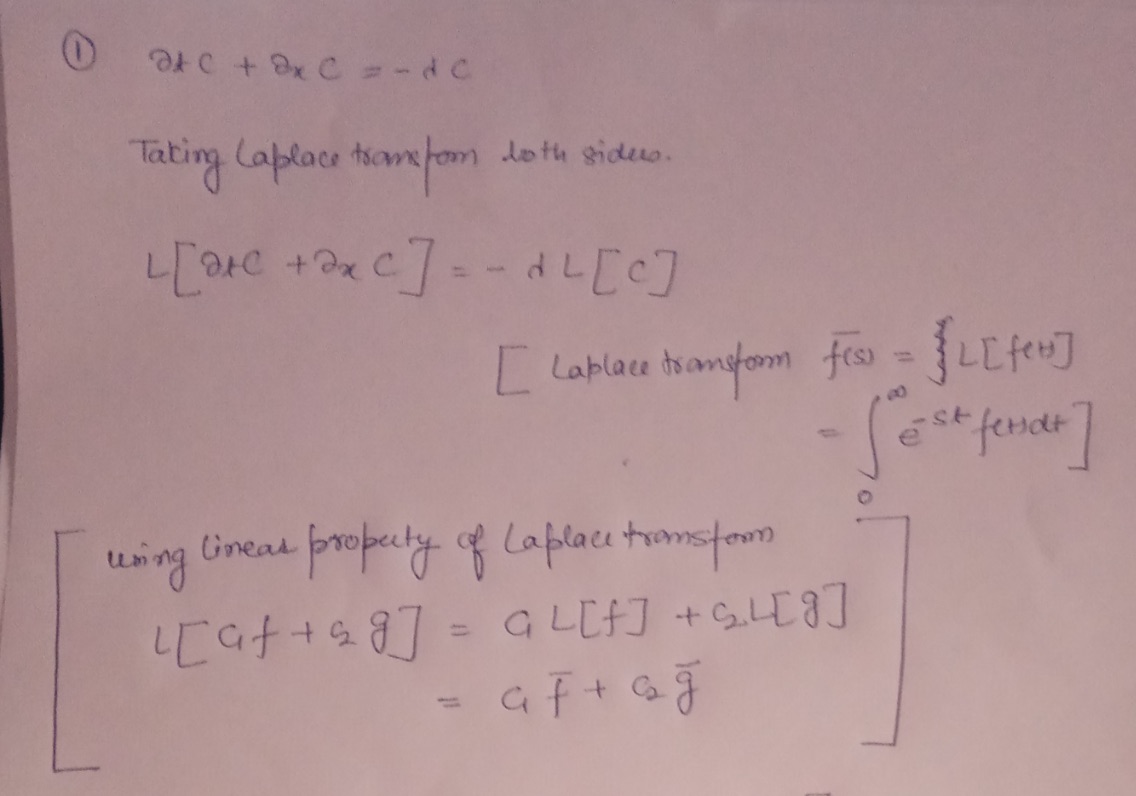 ① ∂t C + ∂x C = - d C
Taking Laplace transfom both sides.
L[∂t C + ∂x C] = - d L[C]
[ Laplace transform f̄(s) = L[f(t)]
= ∫₀^∞ e^{-st} f(t)dt ]
using linear property of Laplace transform
L[c₁f + c₂g] = c₁ L[f] + c₂ L[g]
= c₁ f̄ + c₂ ḡ